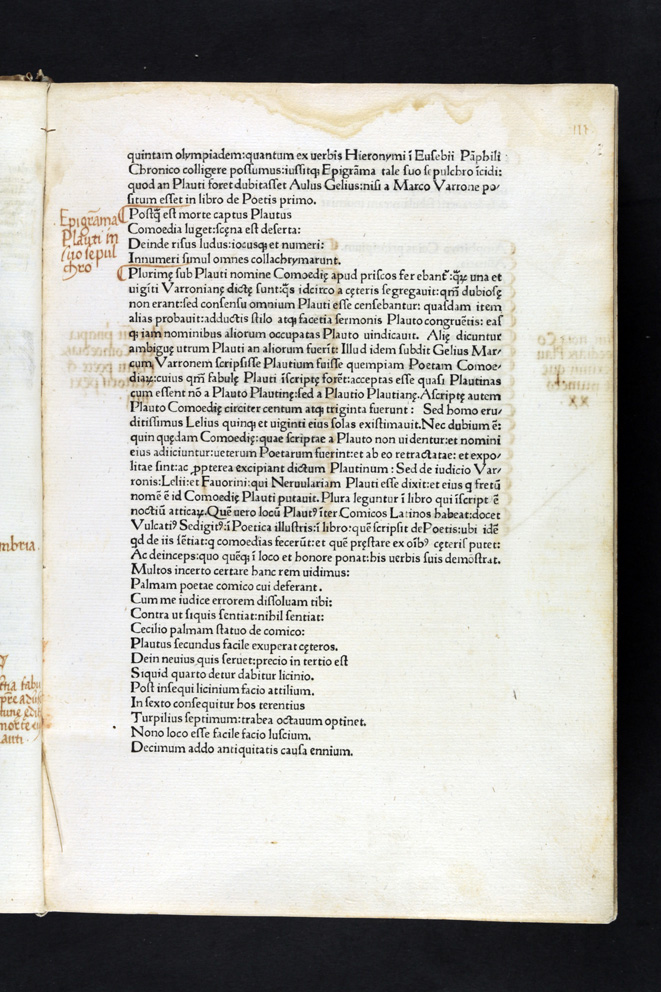 III
quintam olympiadem:quantum ex uerbis Hieronymi ĩ Eusebii Pãphili
Chronico colligere possumus:iussitq; Epigrãma tale suo sepulchro ĩcidi:
quod an Plauti foret dubitasset Aulus Gelius:nisi a Marco Varrone po/
situm esset in libro de Poetis primo.
Epigrãma
Plauti in
suo sepul
chro
Postq̃ est morte captus Plautus
Comoedia luget:scęna est deserta:
Deinde risus ludus:iocusq; et numeri:
Innumeri simul omnes collachrymarunt.
Plurimę sub Plauti nomine Comoedię apud priscos ferebant᷑:qꝝ una et
uigĩti Varronianę dictę sunt:q̃s idcirco a cęteris segregauit:qm̃ dubiosę
non erant:sed consensu omnium Plauti esse censebantur: quasdam item
alias probauit:adductus stilo atq; facetia sermonis Plauto congruẽtis: eas
q; iam nominibus aliorum occupatas Plauto uindicauit. Alię dicuntur
ambiguę utrum Plauti an aliorum fuerĩt: Illud idem subdit Gelius Mar/
cum Varronem scripsisse Plautium fuisse quempiam Poetam Comoe/
diaꝝ:cuius qm̃ fabulę Plauti ĩscriptę forẽt:acceptas esse quasi Plautinas
cum essent nõ a Plauto Plautinę:sed a Plautio Plautianę.Ascriptę autem
Plauto Comoedię circiter centum atq; triginta fuerunt : Sed homo eru/
ditissimus Lelius quinq; et uiginti eius solas existimauit.Nec dubium ẽ:
quin quędam Comoedię:quae scriptae a Plauto non uidentur:et nomini
eius adiiciuntur:ueterum Poetarum fuerint:et ab eo retractatae: et expo/
litae sint:ac ꝓpterea excipiant dictum Plautinum : Sed de iudicio Var/
ronis:Lelii:et Fauorini:qui Neruulariam Plauti esse dixit:et eius q fretũ
nomẽ ẽ id Comoedię Plauti putauit. Plura leguntur ĩ libro qui ĩscript᷑ ẽ
noctiũ atticaꝝ.Quẽ uero locũ Plautꝰ ĩter Comicos Latinos habeat:docet
Vulcatiꝰ Sedigitꝰ:ĩ Poetica illustris:ĩ libro:quẽ scripsit dePoetis:ubi idẽ
qd de iis sẽtiat:q comoedias fecerũt:et quẽ pręstare ex oĩbꝰ cęteris putet:
Ac deinceps:quo quẽq; ĩ loco et honore ponat:his uerbis suis demõstrat.
Multos incerto certare hanc rem uidimus:
Palmam poetae comico cui deferant.
Cum me iudice errorem dissoluam tibi:
Contra ut siquis sentiat:nihil sentiat:
Cecilio palmam statuo de comico:
Plautus secundus facile exuperat cęteros.
Dein neuius quis seruet:precio in tertio est
Siquid quarto detur dabitur licinio.
Post insequi licinium facio attilium.
In sexto consequitur hos terentius
Turpilius septimum:trabea octauum optinet.
Nono loco esse facile facio luscium.
Decimum addo antiquitatis causa ennium.
mbria.